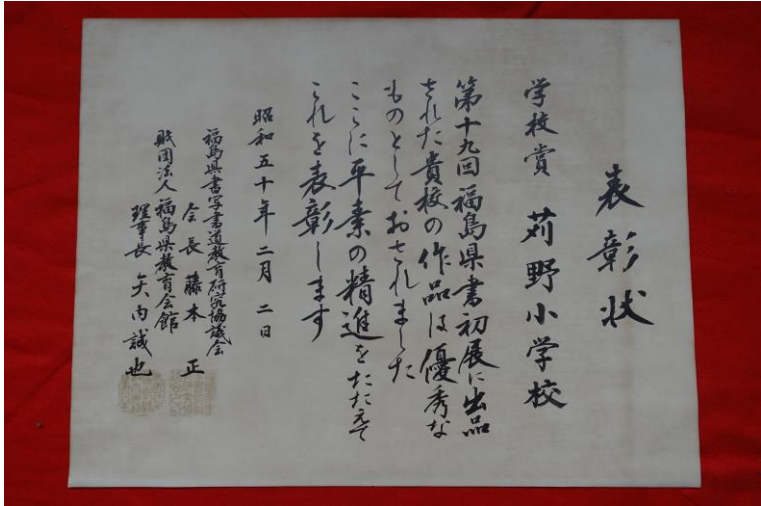 表彰状
学校賞 苅野小学校
第十九回福島県書初展に出品
された貴校の作品は優秀な
ものとしておされました
ここに平素の精進をたたえて
これを表彰します
昭和五十年二月二日
福島県書写書道教育研究協議会
会長 藤本正
財団法人福島県教育会館
理事長 矢内誠也